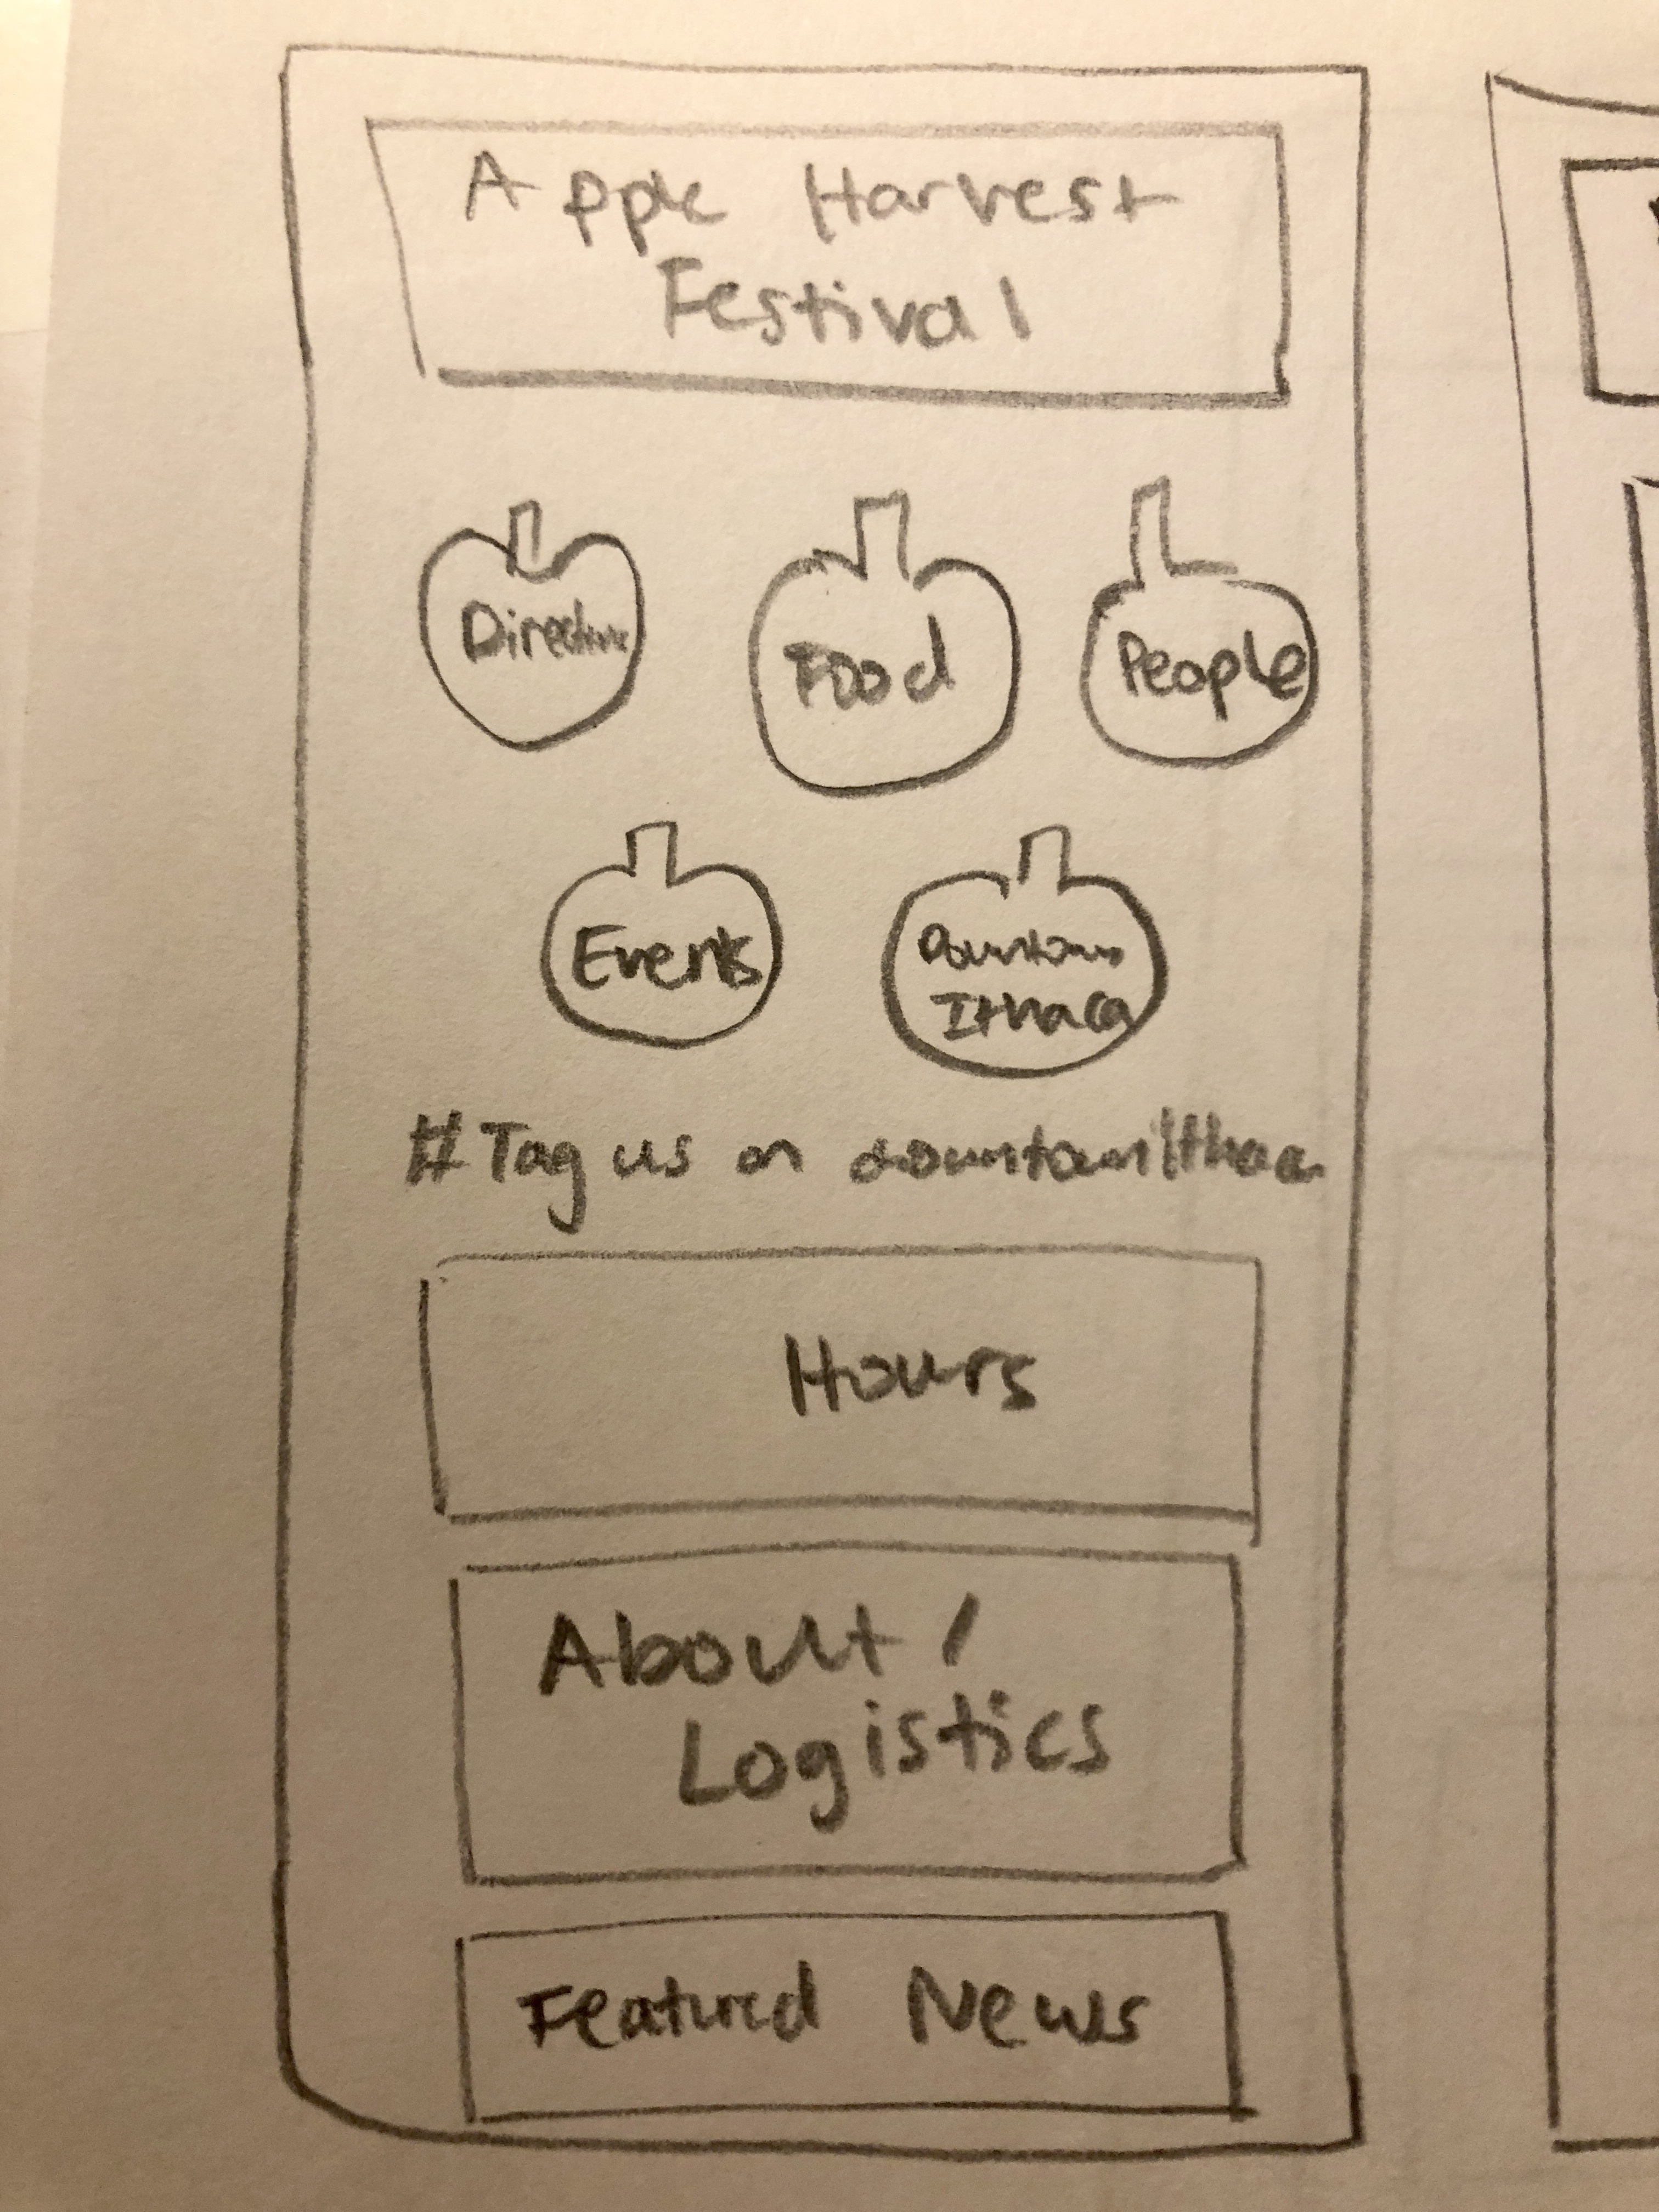 Apple Harvest
Festival
Food
People
Events
Downtown
Ithaca
#Tag us on downtownIthaca
Hours
About /
Logistics
Featured News